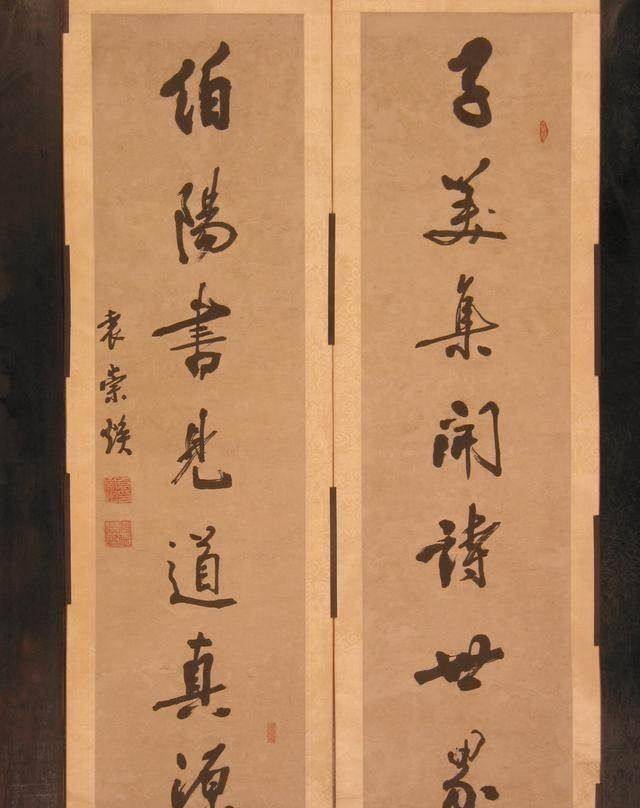 子美集開詩世界
伯陽書見道真源
袁崇煥